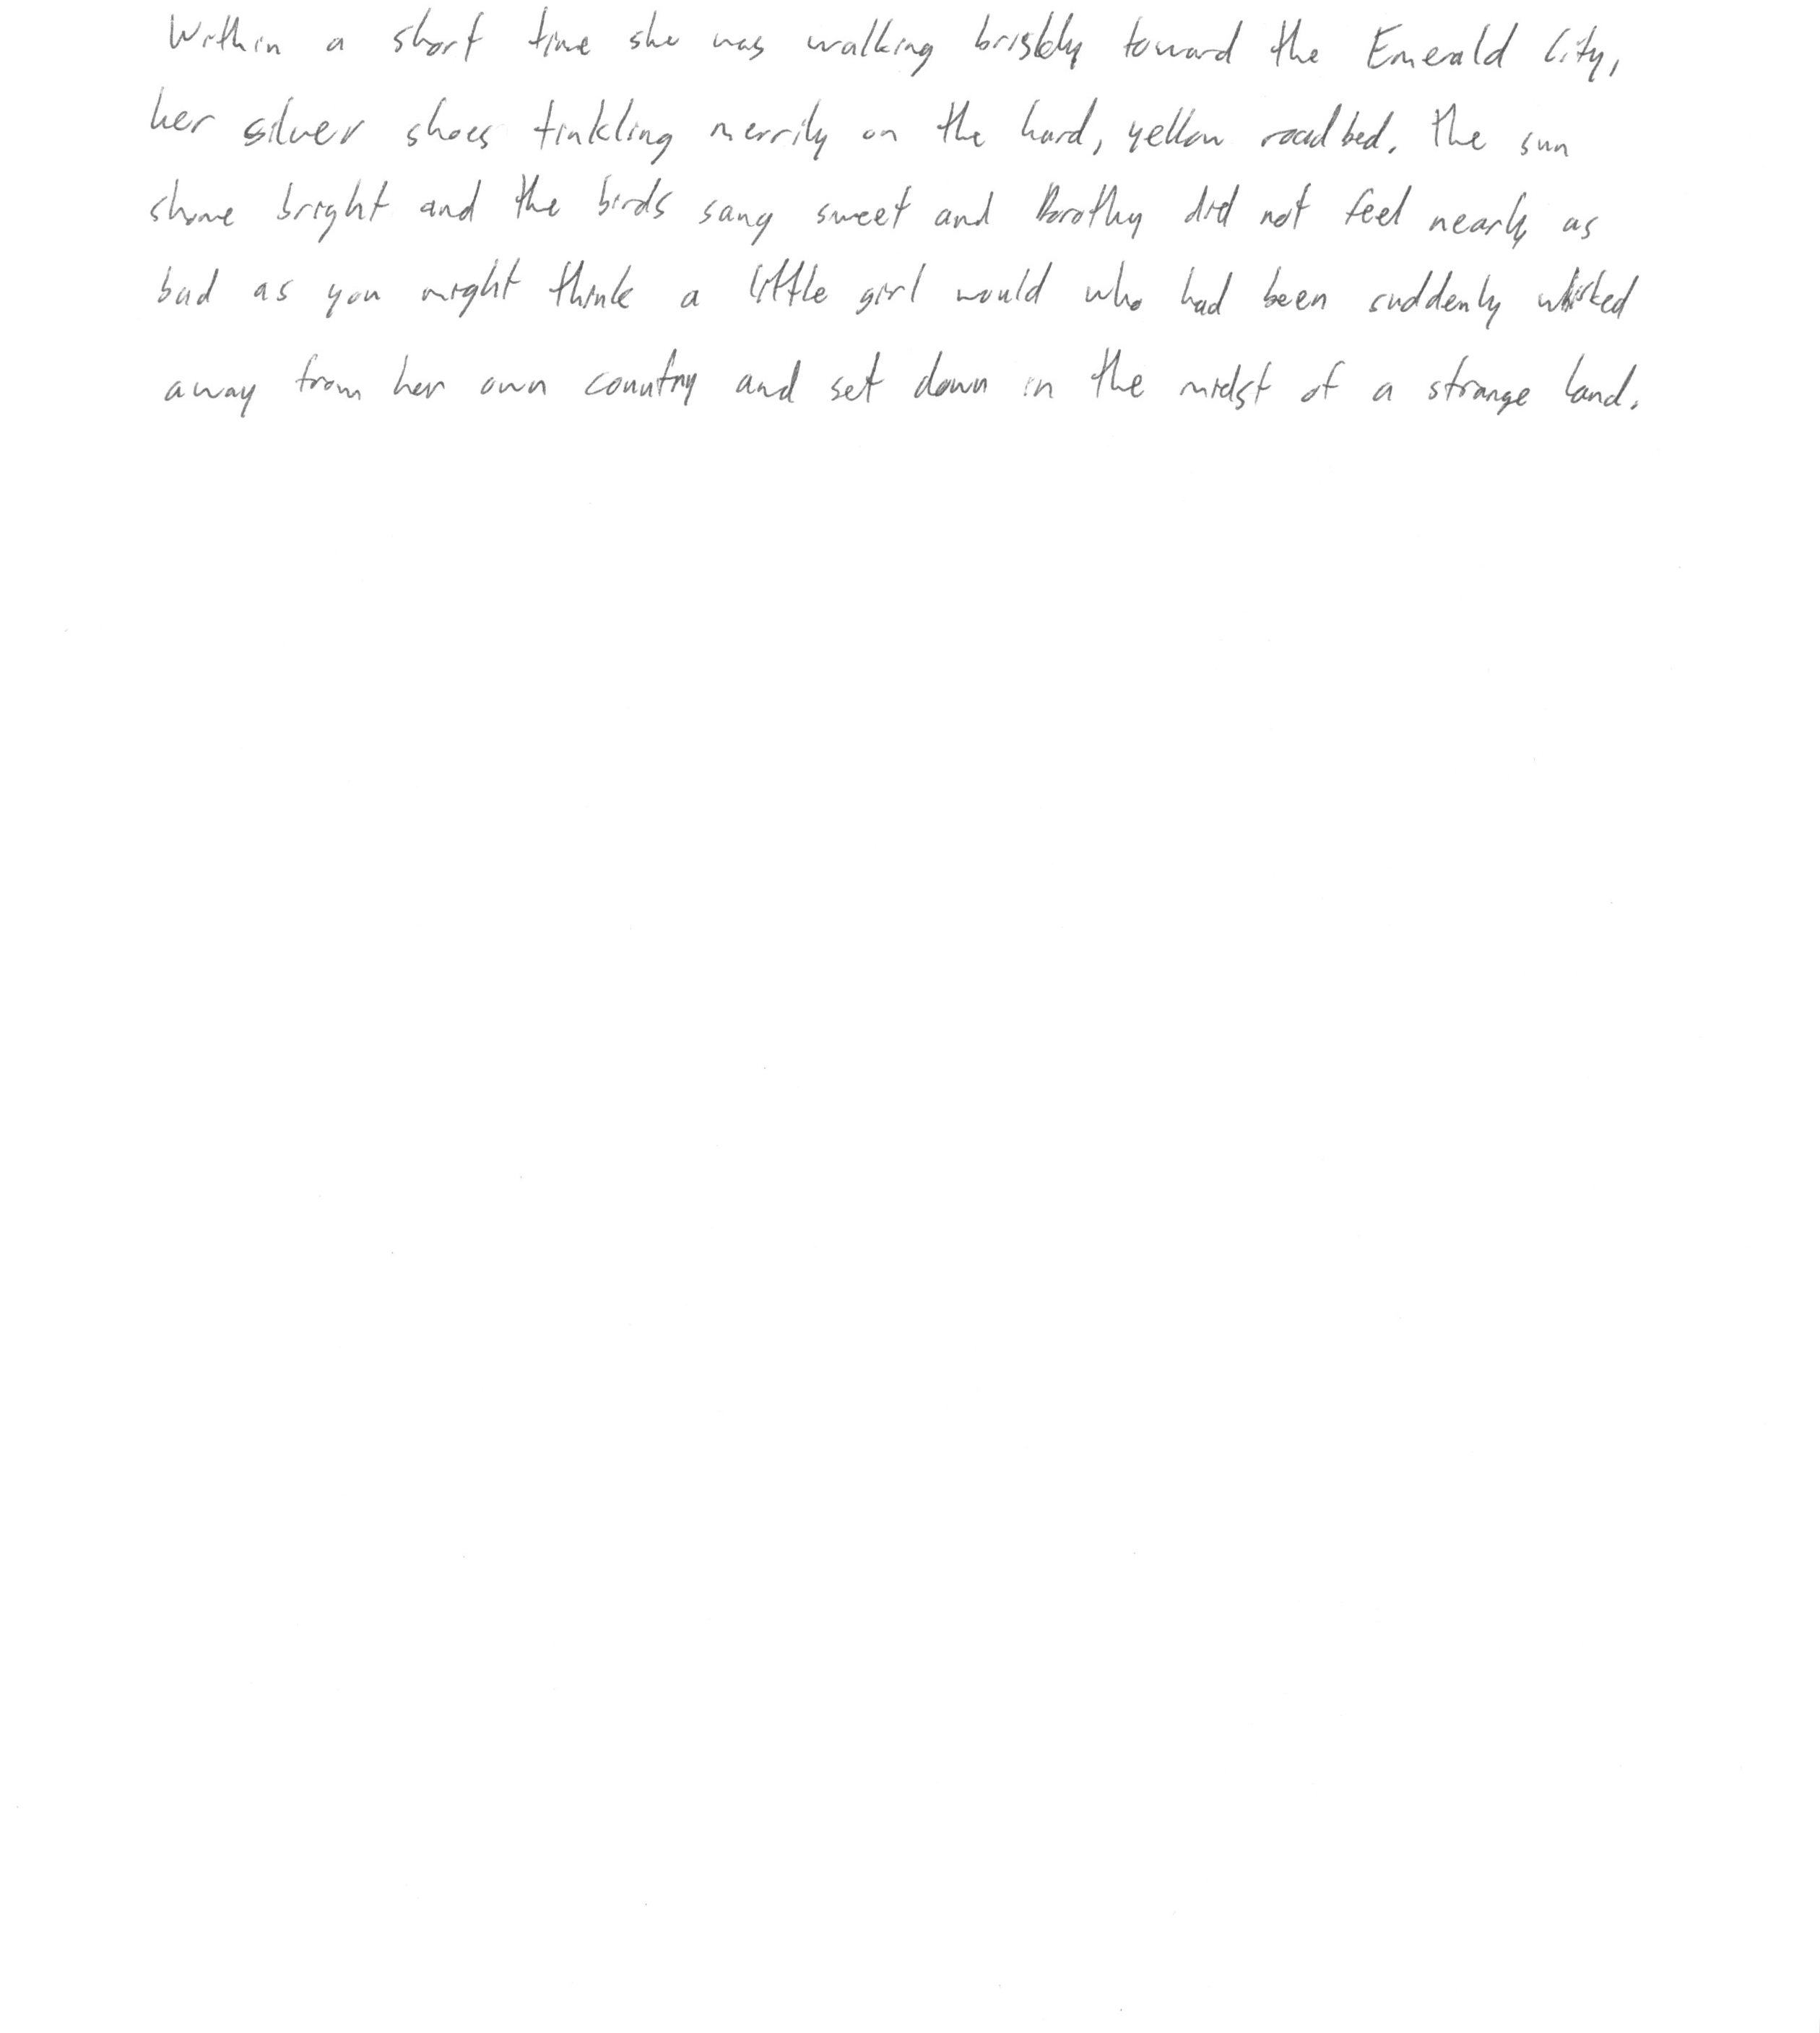 Within a short time she was walking briskly toward the Emerald City,
her silver shoes tinkling merrily on the hard, yellow roadbed. The sun
shone bright and the birds sang sweet and Dorothy did not feel nearly as
bad as you might think a little girl would who had been suddenly whisked
away from her own country and set down in the midst of a strange land.